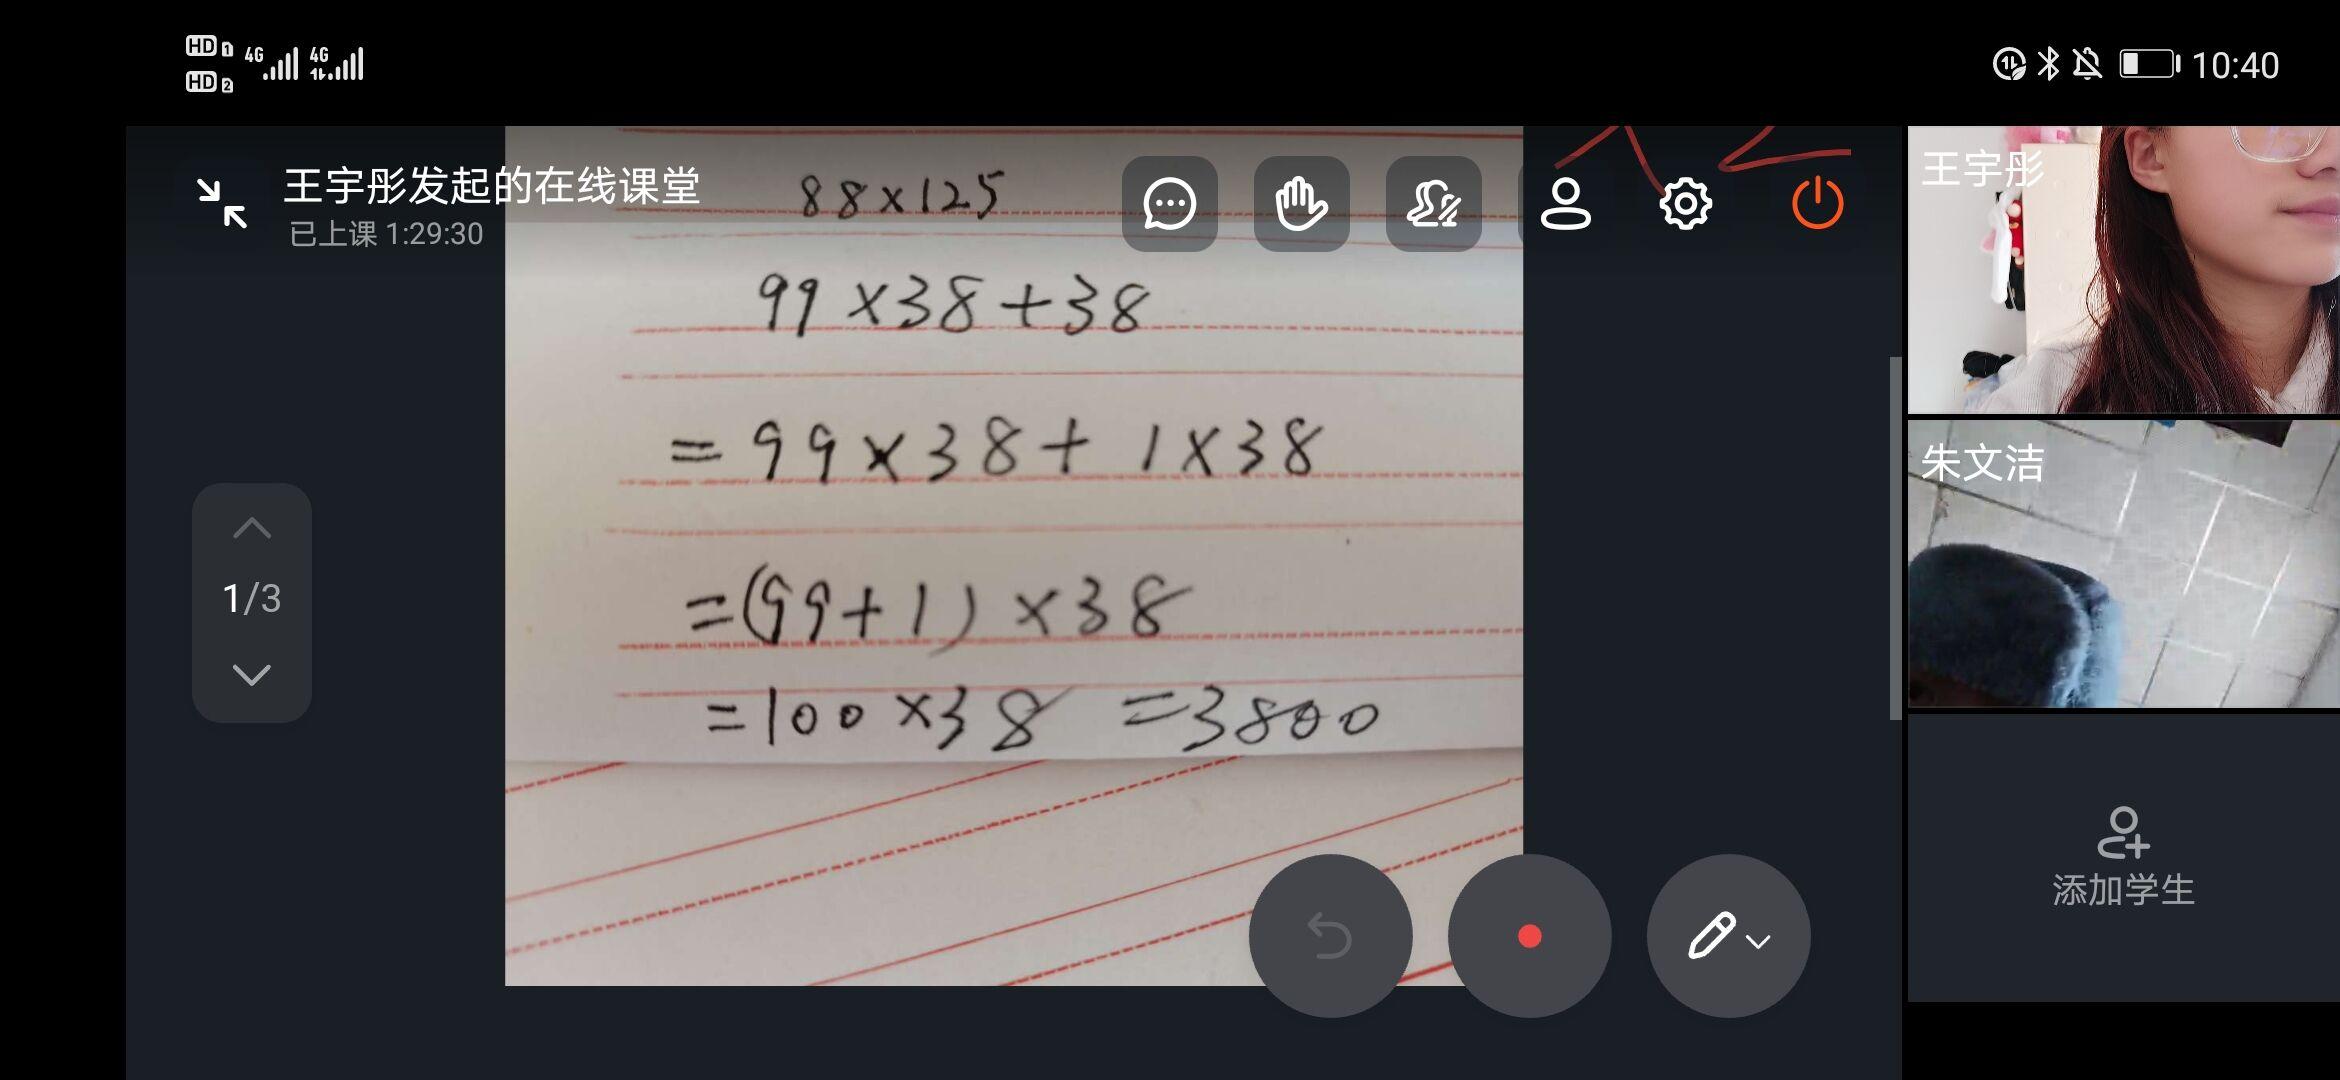 HD 1 4G 4G
HD 2
10:40
王宇彤发起的在线课堂
已上课 1:29:30
88×125
99×38+38
=99×38+1×38
=(99+1)×38
=100×38 =3800
1/3
王宇彤
朱文洁
添加学生